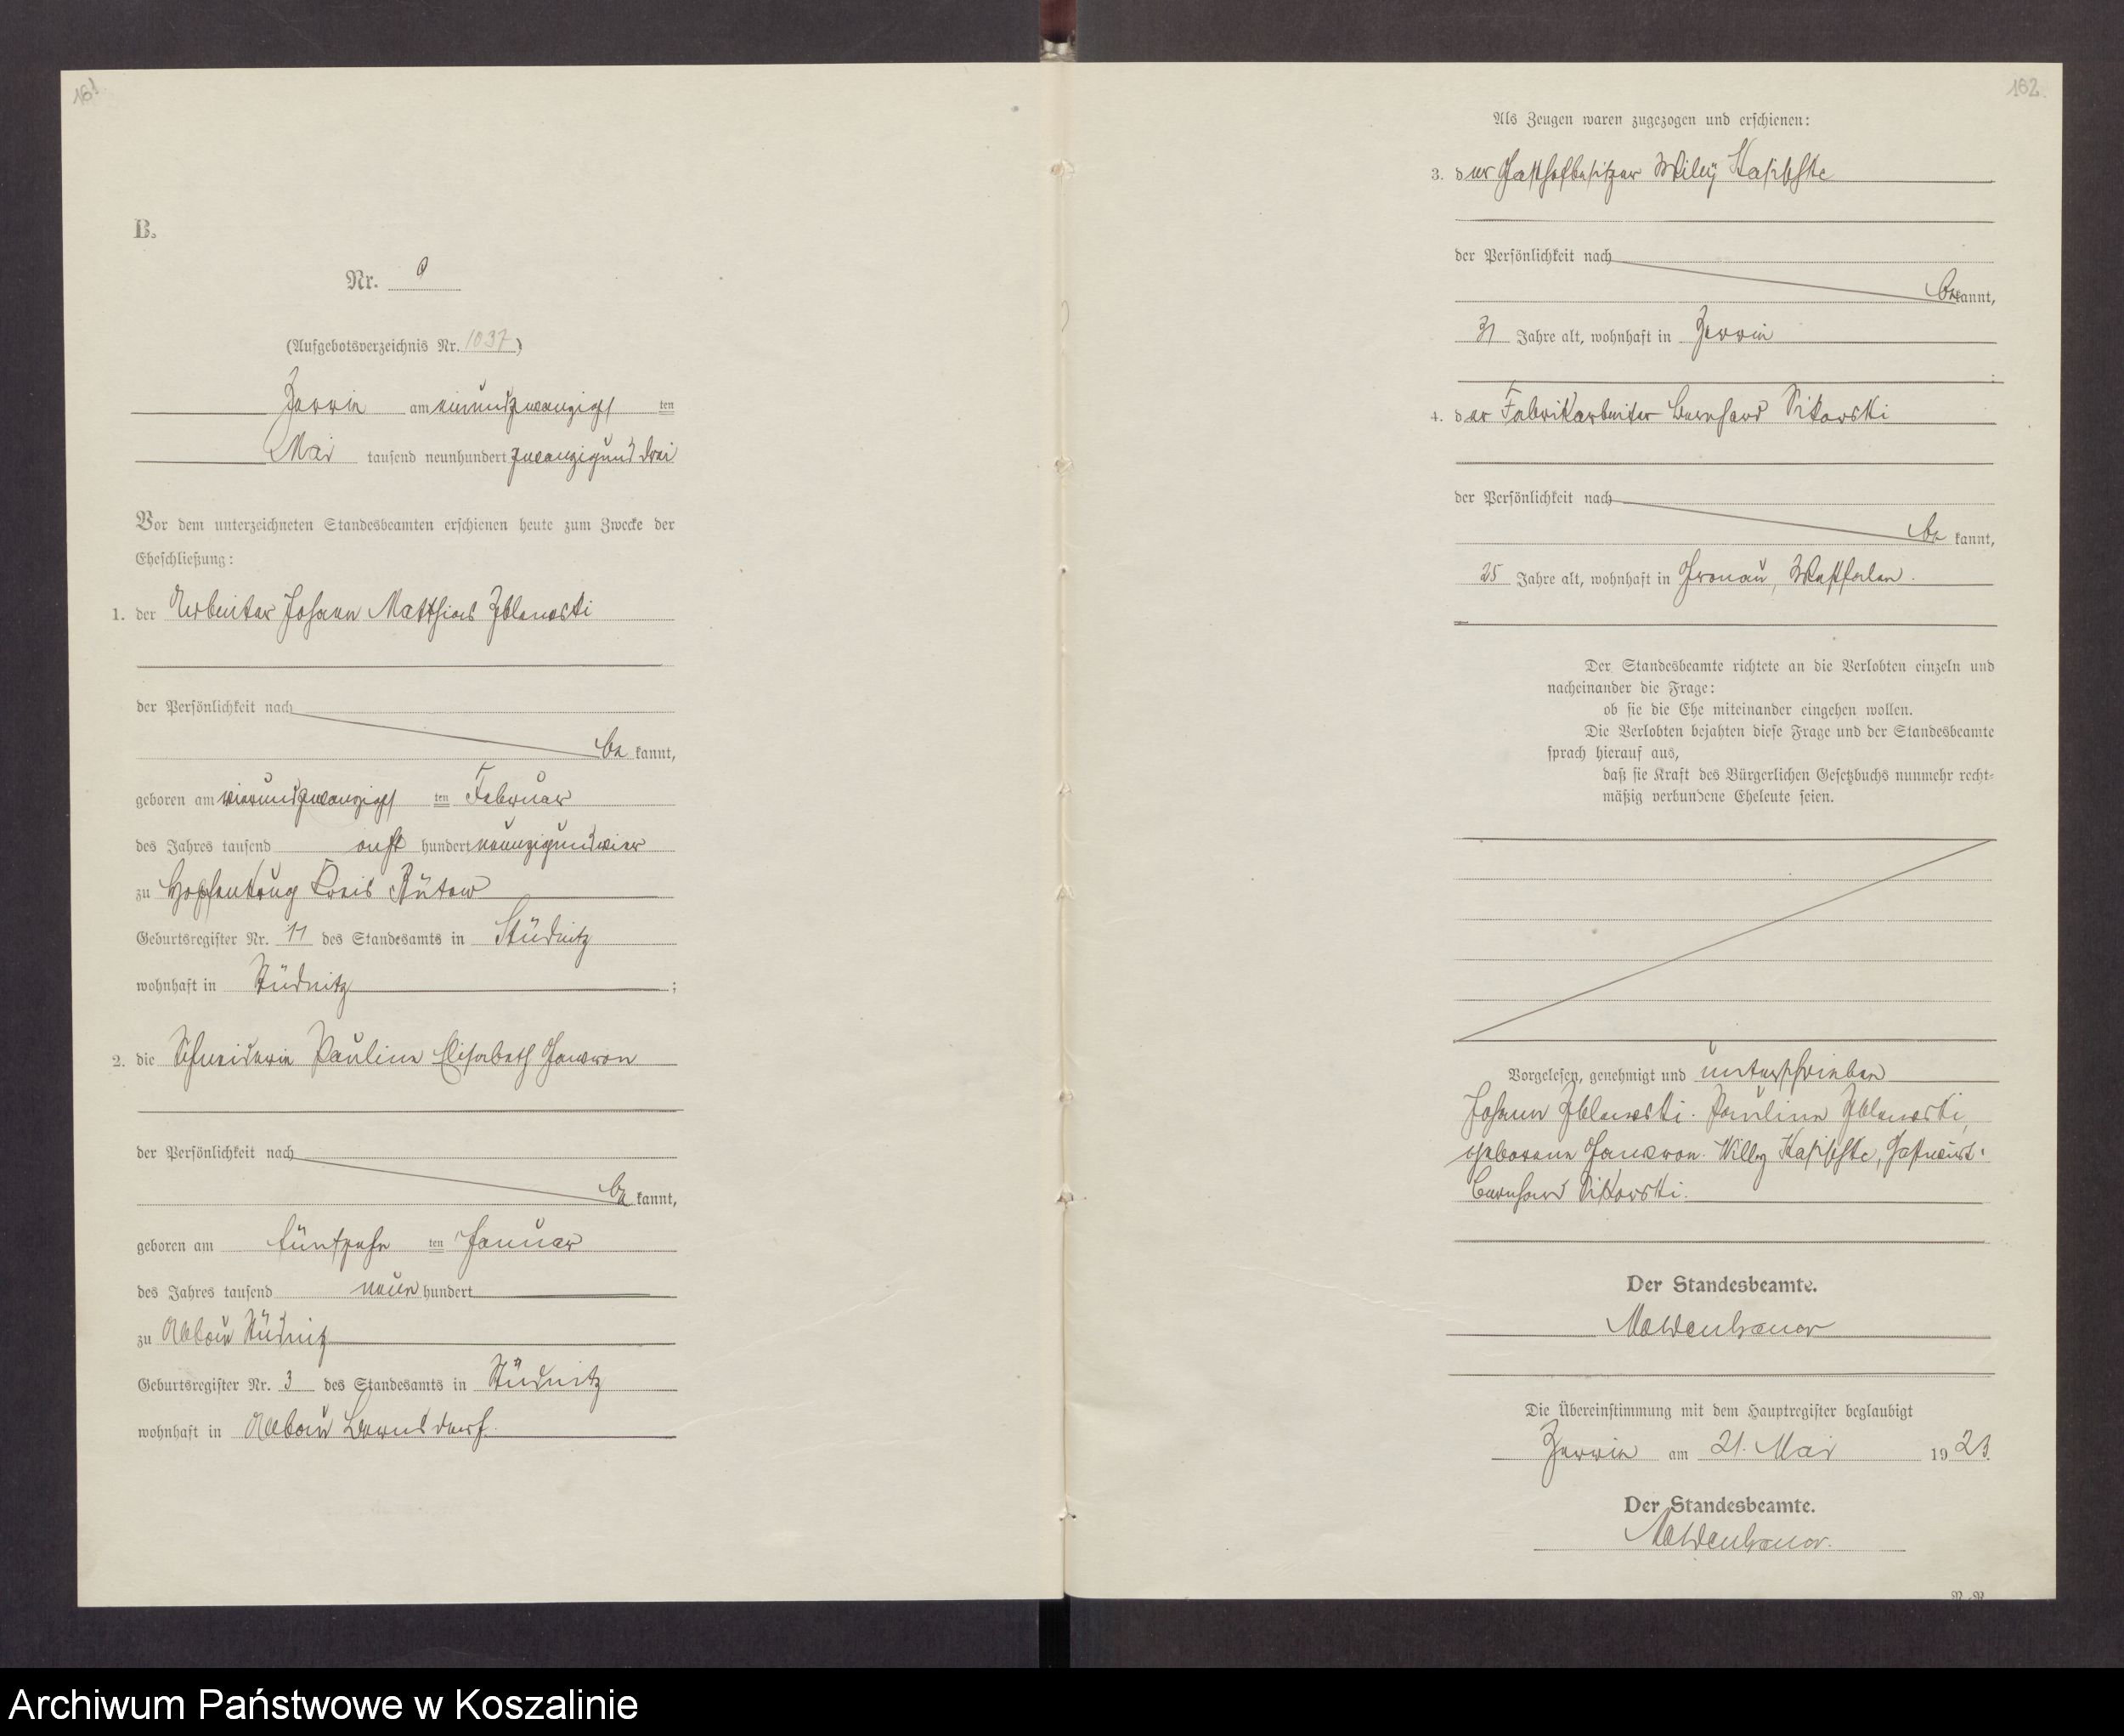 161
B.
Nr. 9
(Aufgebotsverzeichnis Nr. 1037)
Zerrin am einundzwanzigst ten
Mai tausend neunhundert zwanzigund drei
Vor dem unterzeichneten Standesbeamten erschienen heute zum Zwecke der
Eheschließung:
1. der Arbeiter Johann Matthias
der Persönlichkeit nach
be kannt,
geboren am vierundzwanzigst ten Februar
des Jahres tausend acht hundert neunzigundvier
zu Hopfenkrug Kreis Bütow
Geburtsregister Nr. 11 des Standesamts in Stüdnitz
wohnhaft in Stüdnitz ;
2. die Schneiderin Pauline Elisabeth
der Persönlichkeit nach
be kannt,
geboren am fünfzehn ten Januar
des Jahres tausend neun hundert
zu Abbau Stüdnitz
Geburtsregister Nr. 3 des Standesamts in Stüdnitz
wohnhaft in Abbau Bernsdorf.
162.
Als Zeugen waren zugezogen und erschienen:
3. der Gasthofbesitzer Willy Kasischke
der Persönlichkeit nach
bekannt,
31 Jahre alt, wohnhaft in Zerrin
4. der Fabrikarbeiter Bernhard Sikorski
der Persönlichkeit nach
be kannt,
25 Jahre alt, wohnhaft in Gronau, Westfalen.
Der Standesbeamte richtete an die Verlobten einzeln und
nacheinander die Frage:
ob sie die Ehe miteinander eingehen wollen.
Die Verlobten bejahten diese Frage und der Standesbeamte
sprach hierauf aus,
daß sie Kraft des Bürgerlichen Gesetzbuchs nunmehr recht-
mäßig verbundene Eheleute seien.
Vorgelesen, genehmigt und unterschrieben
Johann Pauline
geborene Willy Kasischke, Gastwirt.
Bernhard Sikorski.
Der Standesbeamte.
Moldenhauer
Die Übereinstimmung mit dem Hauptregister beglaubigt
Zerrin am 21. Mai 1923
Der Standesbeamte.
Moldenhauer.
Archiwum Państwowe w Koszalinie